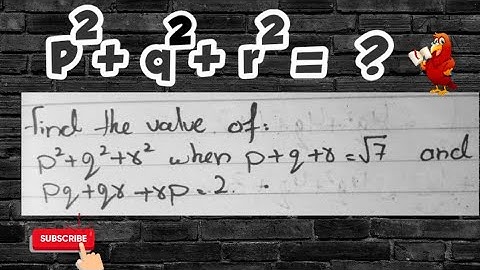 p²+q²+r²=?
find the value of:
p²+q²+r² when p+q+r=√7 and
pq+qr+rp=2.
SUBSCRIBE